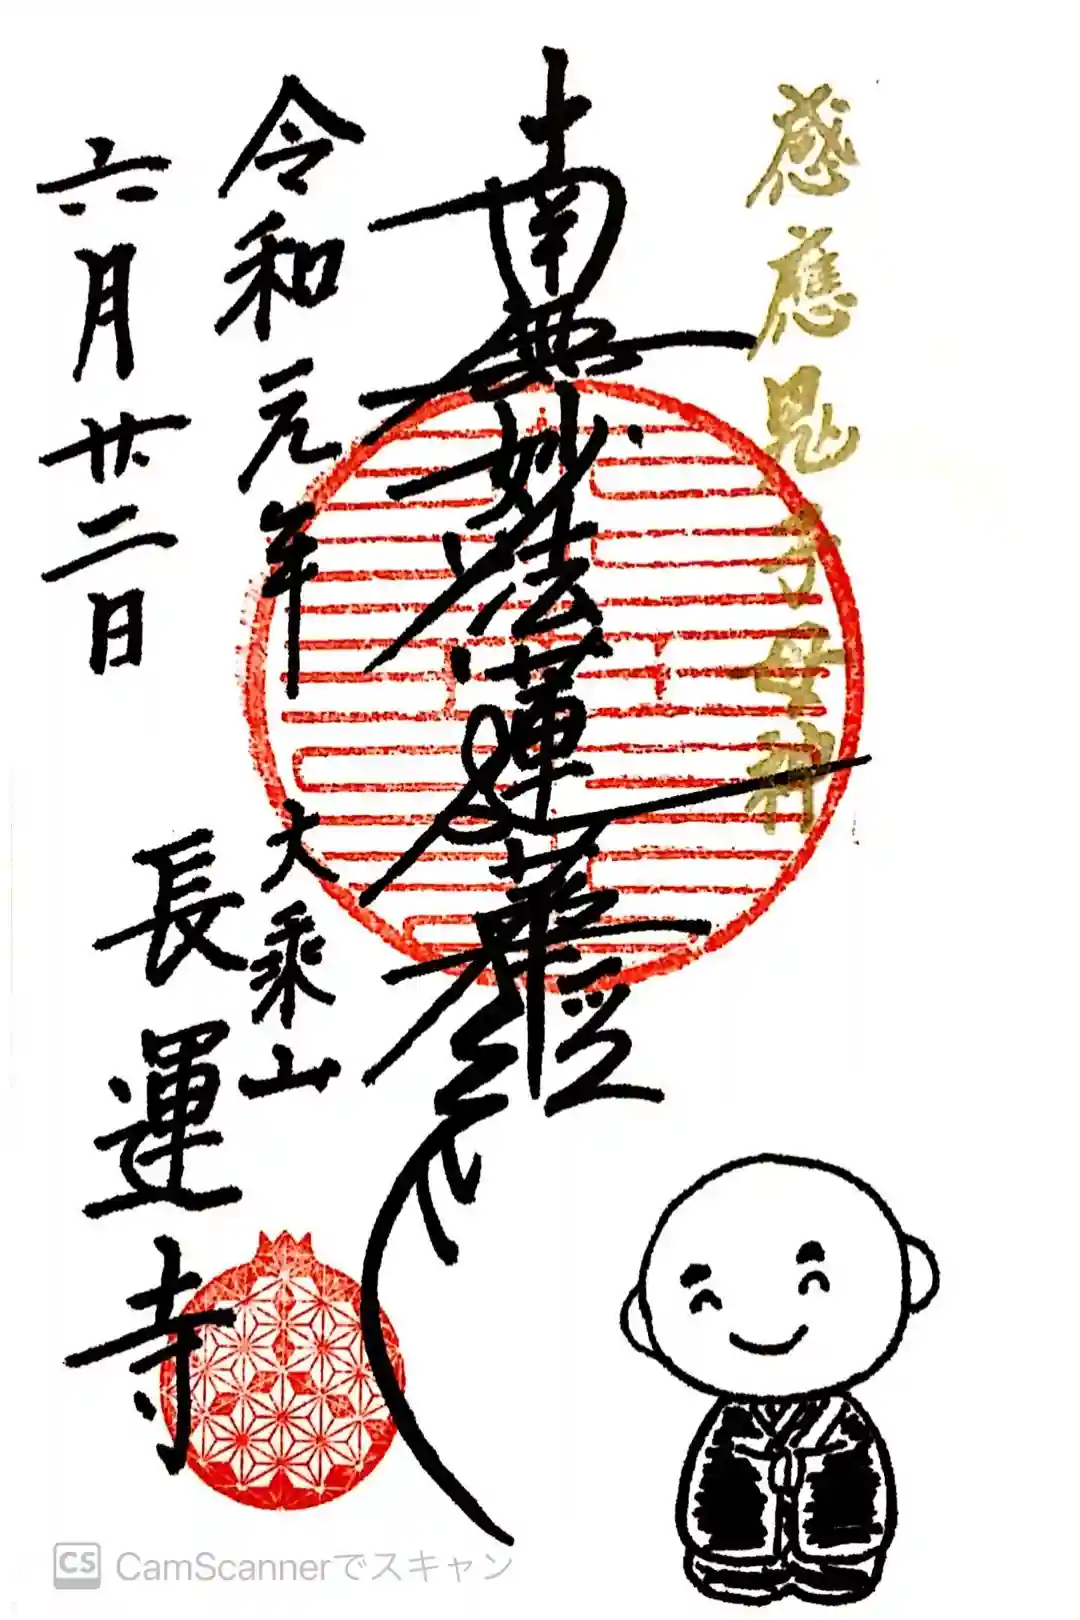 感應鬼子母神
南無妙法蓮華経
令和元年
六月廿二日
大乘山
長運寺
CS CamScannerでスキャン